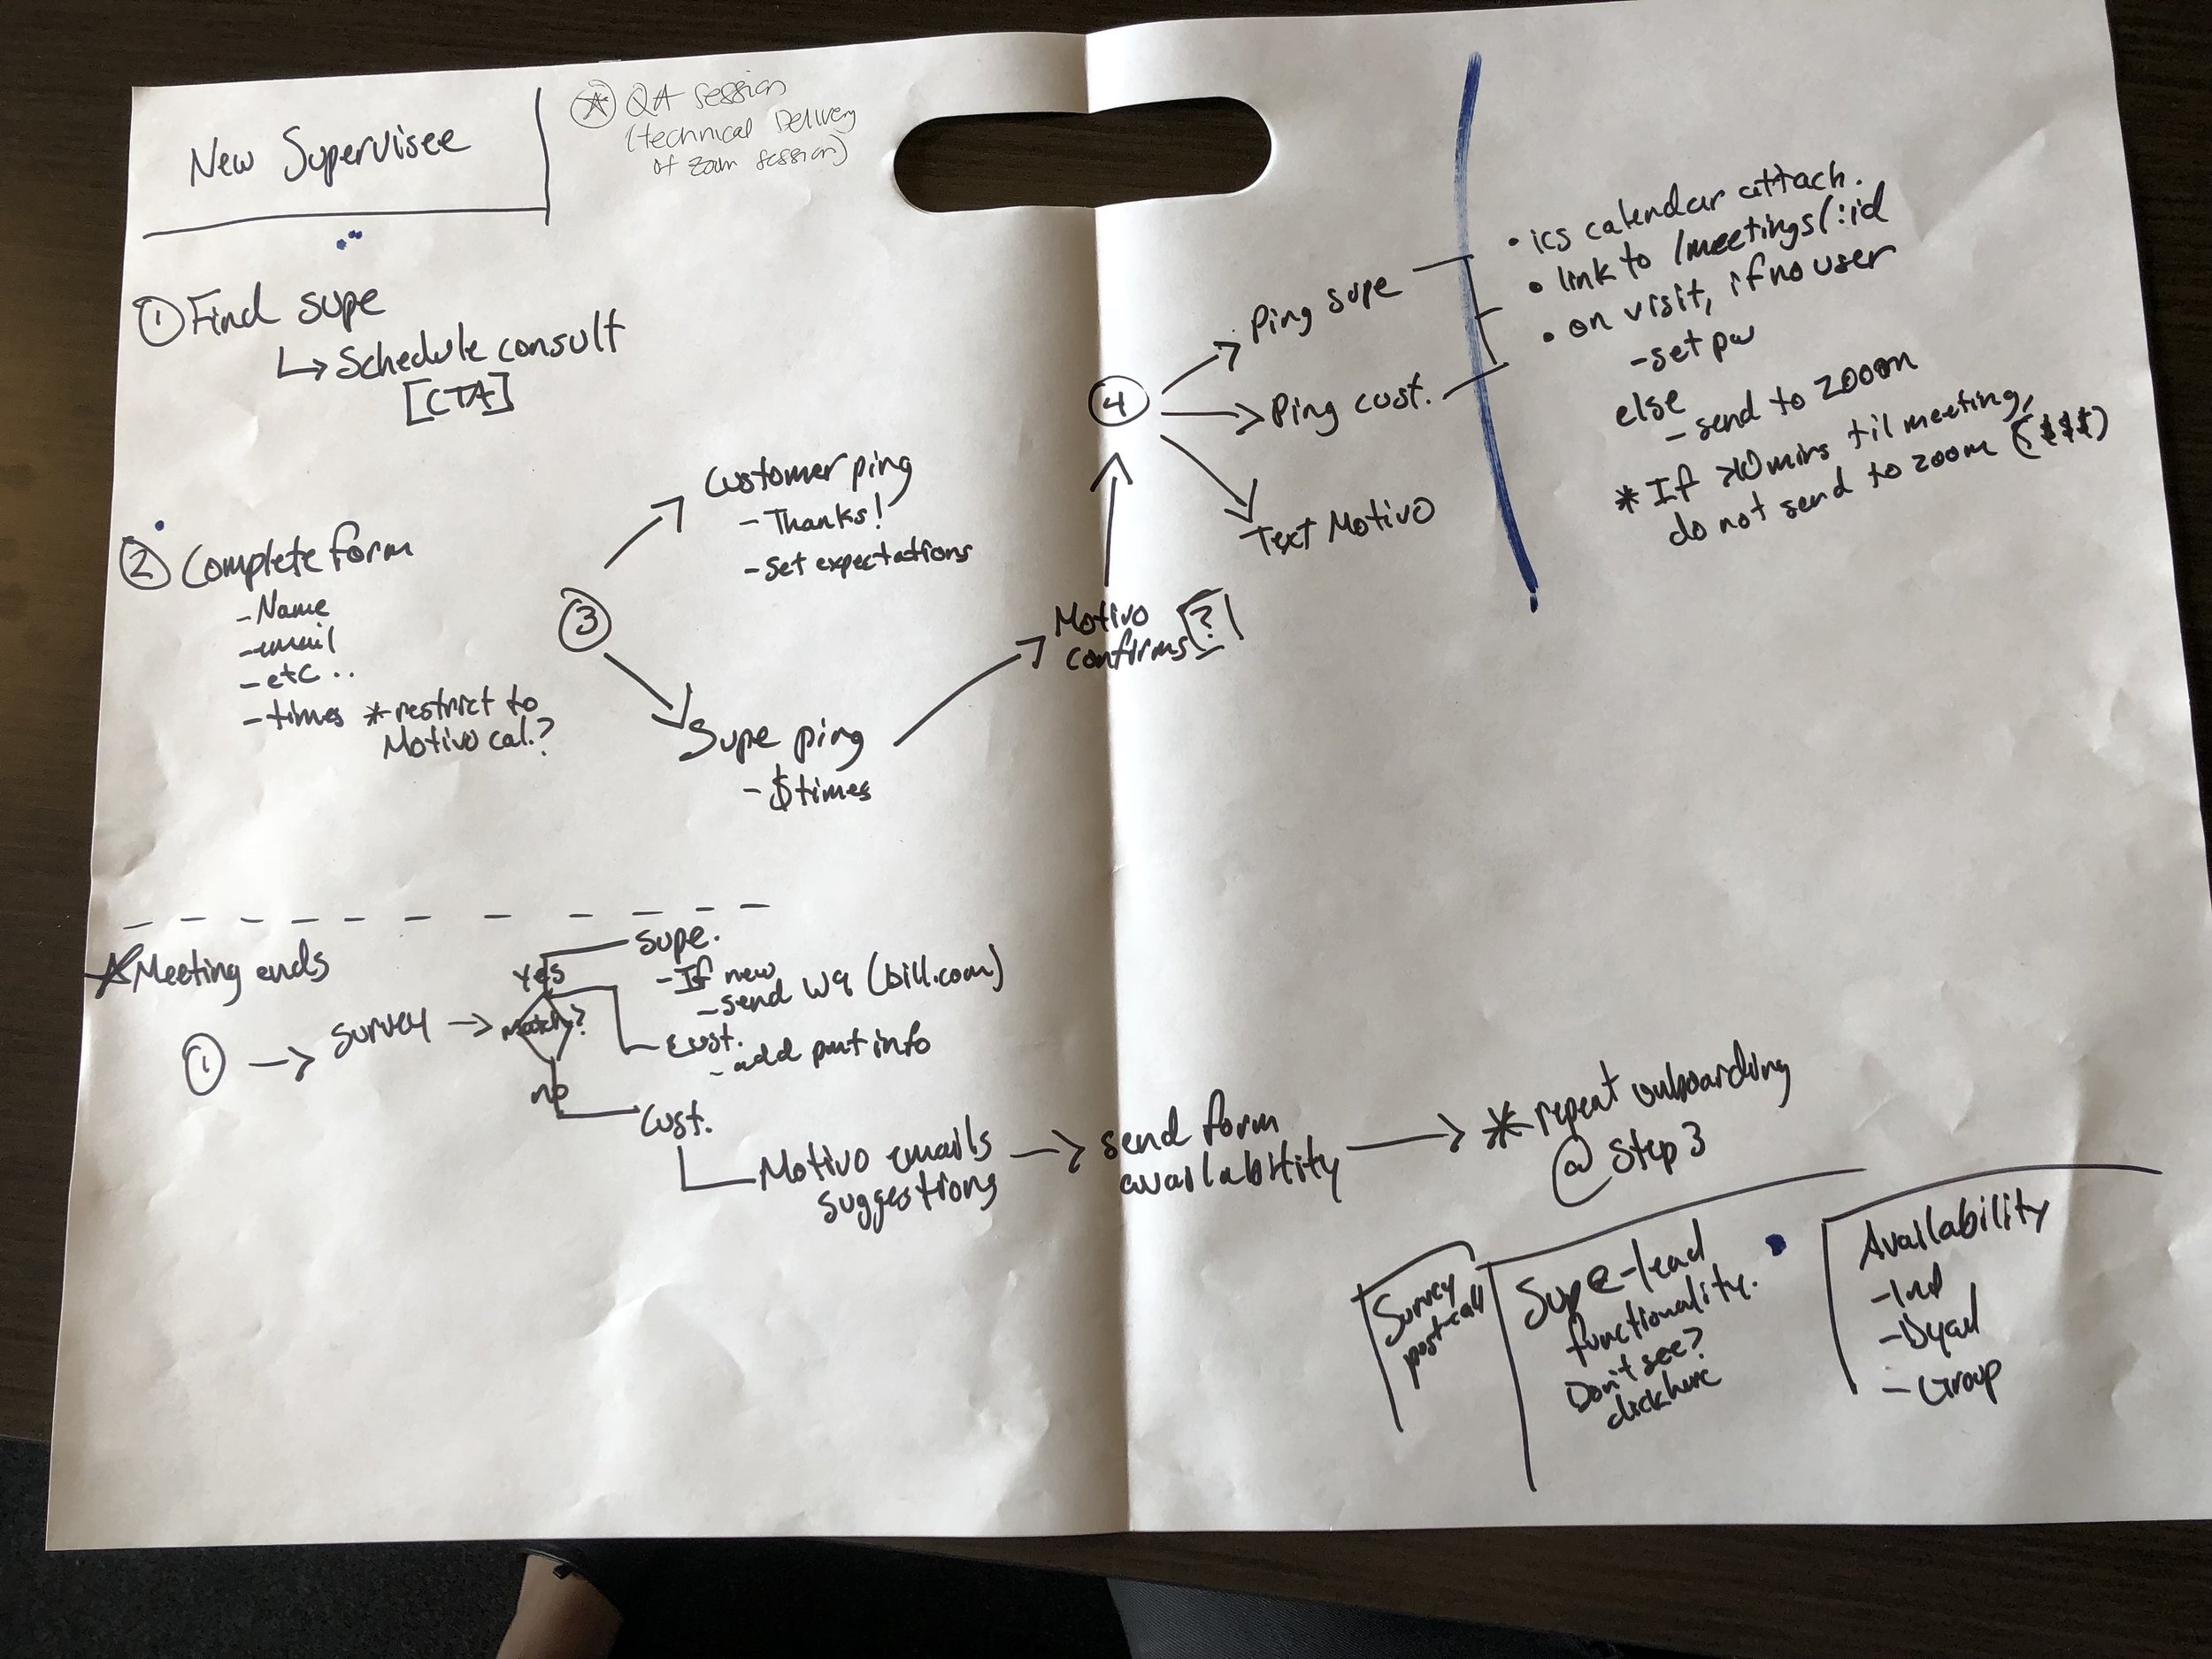 New Supervisee
QA session
(technical Delivery
of zoom session)
① Find supe
↳ Schedule consult
[CTA]
② Complete form
- Name
- email
- etc ..
- times * restrict to
Motivo cal.?
③
Customer ping
- Thanks!
- Set expectations
Supe ping
- $times
Motivo
confirms ?
④
Ping supe
Ping cust.
Text Motivo
• ics calendar attach.
• link to /meetings/:id
• on visit, if no user
- set pw
else
- send to zoom
* If >10 mins til meeting,
do not send to zoom ($$$)
* Meeting ends
① → survey → match?
yes
Supe.
- If new
- send W9 (bill.com)
Cust.
- add pmt info
no
Cust.
Motivo emails
suggestions
→ send form
availability
→ * repeat onboarding
@ Step 3
Survey
post-call
Supe-lead
functionality.
Don't see?
click here
Availability
- Ind
- Dyad
- Group